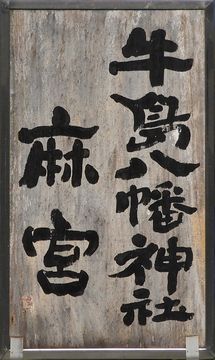 牛島八幡神社
麻宮